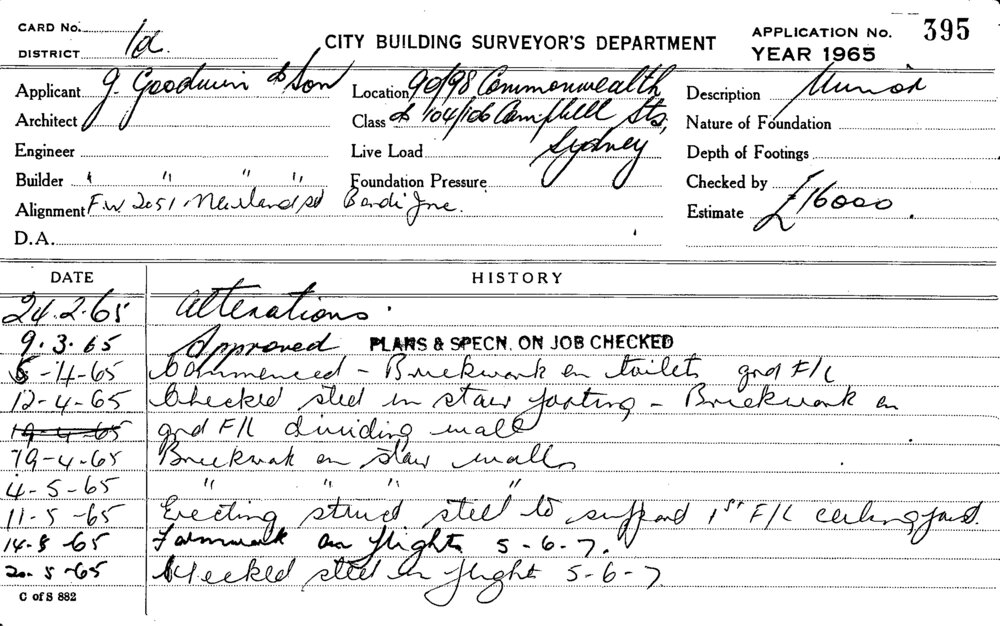 CARD No. 1d. CITY BUILDING SURVEYOR'S DEPARTMENT APPLICATION No. 395
DISTRICT YEAR 1965
Applicant J. Goodwin & Son Location 90/98 Commonwealth Description
Architect Class & 104/106 Campbell Sts, Nature of Foundation
Engineer Live Load Sydney Depth of Footings
Builder " " " " Foundation Pressure Checked by
Alignment F.W. 2051 Newland St Bondi Jnc. Estimate £16000.
D.A.
DATE HISTORY
24.2.65 Alterations.
9.3.65 Approved PLANS & SPECN. ON JOB CHECKED
5-4-65 Commenced - Brickwork on toilets grd F/L
12-4-65 Checked steel in stair footing - Brickwork on
19-4-65 grd F/L dividing wall
19-4-65 Brickwork on stair walls
4-5-65 " " " "
11-5-65 Erecting struct. steel to support 1st F/L ceiling joist.
14-5-65 Formwork on flights 5-6-7.
20-5-65 Checked steel in flight 5-6-7
C of S 882